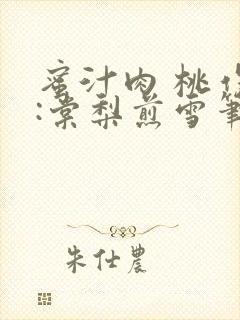 蜜汁肉桃
:棠梨煎雪筆
朱仕農